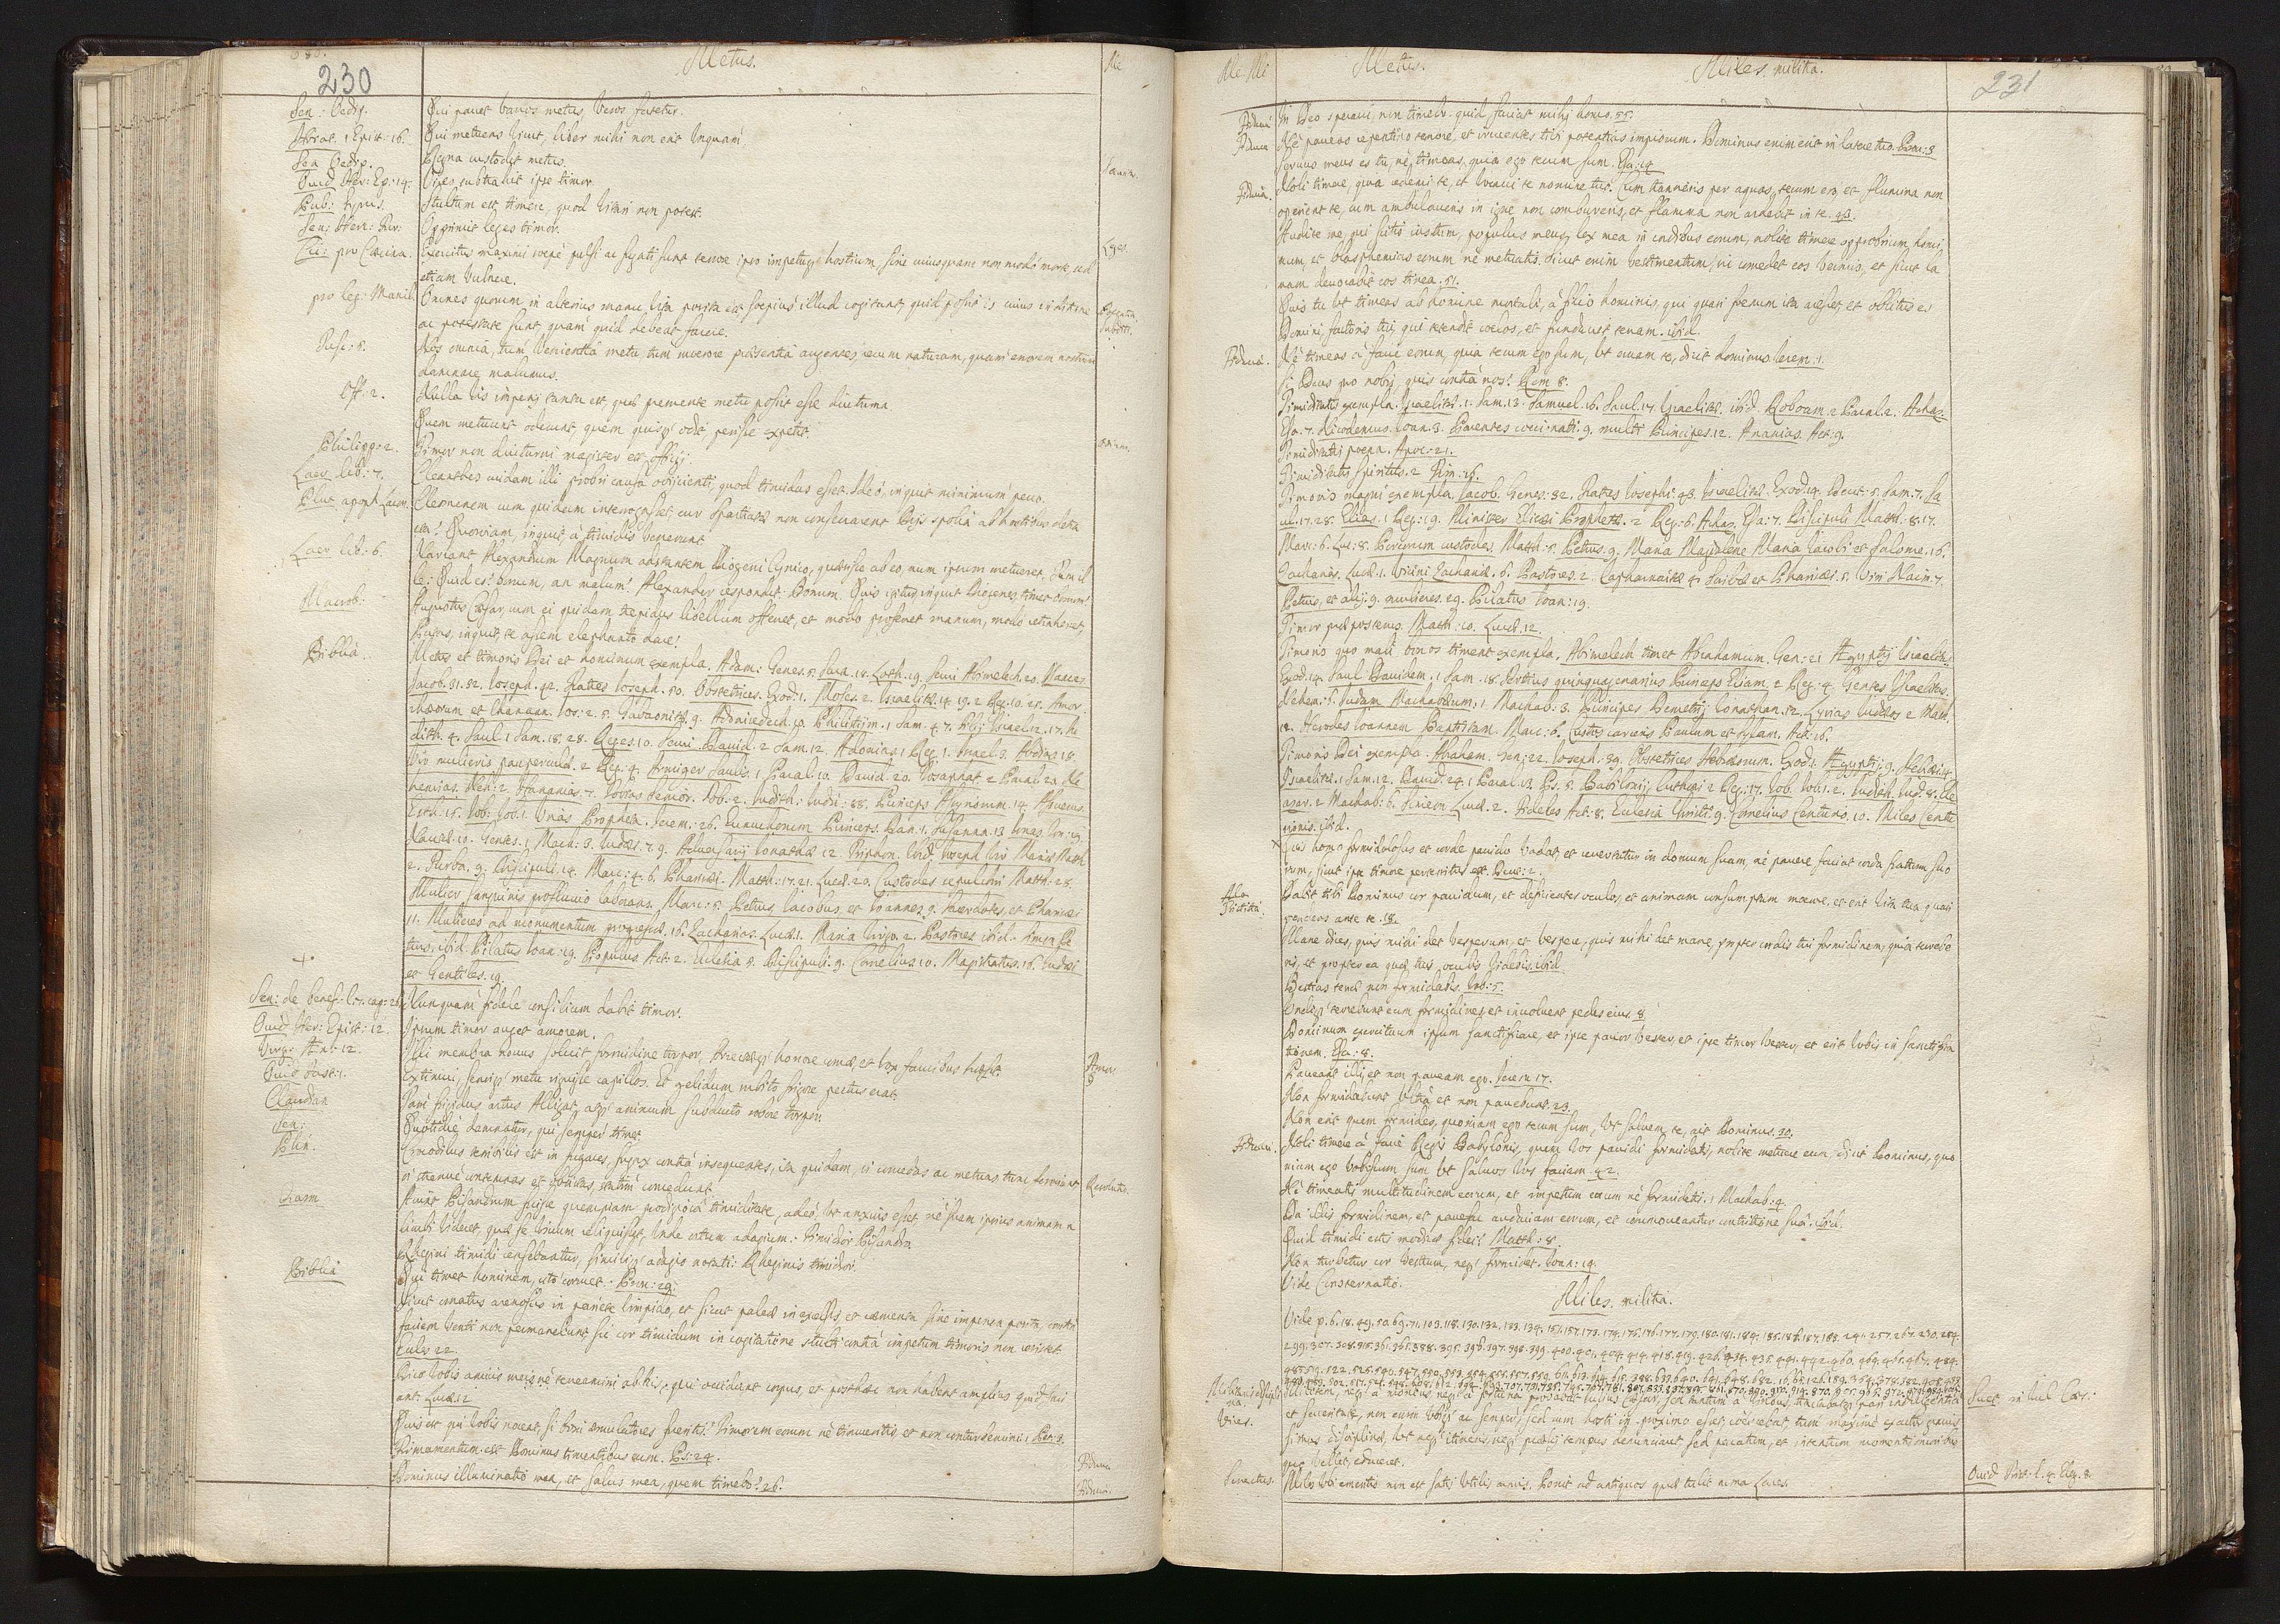 230
Metus.
Me
Sen: Oedip. Qui pavet vanos metus, veros fatetur.
Horat. 1 Epist: 16. Qui metuens vivit, liber mihi non erit unquam
Sen Oedip. Regna custodit metus.
Ovid. Her: Ep: 14. Vires subtrahit ipse timor.
Pub: Syrus. Stultum est timere, quod vitari non potest.
Sen: Herc: Fur: Opprimit leges timor. Leges.
Cic: pro Caecina. Exercitus maximi saepè pulsi ac fugati sunt terrore ipso impetuq hostium, sine cuiusquam non modò morte, sed
etiam vulnere.
pro leg: Manil. Omnes quorum in alterius manu vita posita est saepius illud cogitant, quid possit is cuius in ditione
ac potestate sunt, quam quid debeat facere.
Nos omnia, tum venientia metu, tum maerore praesentia augentes, rerum naturam, quam errorem nostrum
damnare malumus.
Off: 2. Nulla vis imperij tanta est, quae premente metu possit esse diuturna.
Quem metuunt oderunt, quem quisq odit periisse expetit.
Philipp: 2. Timor non diuturni magister est officij.
Laer. lib: 7. Cleanthes cuidam illi probri causa obijcienti, quod timidus esset. Ideò, inquit minimum pecco.
Plut apoph Lacon. Cleomenem cum quidam interrogasset cur Spartiatae non consecrarent Dijs spolia ab hostibus detra
cta? Quoniam, inquit, à timidis venerunt.
Laer. lib: 6. Narrant Alexandrum Magnum adstantem Diogeni Cynico, quaesisse ab eo, num ipsum metueret. Tum il
le: Quid es? bonum, an malum? Alexander respondit: Bonum. Quis igitur, inquit Diogenes, timet bonum?
Macrob: Augustus Caesar, cum ei quidam trepidus libellum offerret, et modo proferret manum, modò retraheret,
Putas, inquit, te assem elephanto dare?
Biblia. Metus et timoris Dei et hominum exempla. Adam: Genes. 3. Sara. 18. Loth. 19. Servi Abimelech. 20. Isaac
Jacob. 31. 32. Joseph. 42. Fratres Joseph. 50. Obstetrices. Exod. 1. Moses. 2. Israelitae. 14. 19. 2 Reg. 10. 25. Amor
rhaeorum et Chanaan. Jos: 2. 5. Gabaonitae. 9. Adonisedech. 10. Philistiim. 1 Sam. 4. 7.
4. Saul. 1 Sam. 18. 28. Servi David. 2 Sam. 12. Adonias. 1 Reg. 1. Israel. 3. Abdias. 18.
Vir mulieris pauperculae. 2 Reg: 4. Armiger Saulis. 1 Paral. 10. David. 20. Josaphat. 2 Paral 20. Ne
hemias. Neh: 2. Hananias. 7. Tobias senior. Tob: 2. Judith:
Esth. 15. Job: Job. 1. Urias Propheta. Jerem: 26. Eunuchorum Princeps. Dan. 1. Susanna. 13 Jonas. Jon: 1
Nautae. 10. Gentes. 1 Mach: 3. Judas. 7. 9. Adversarij Jonathae 12. Tryphon. ibid. Joseph Vir Mariae Matth
2. Turba. 9. Discipuli. 14. Marc: 4. 6. Pharisaei. Matth: 17. 21. Luc: 20. Custodes sepulchri Matth: 28.
Mulier sanguinis profluvio laborans. Marc: 5. Petrus, Jacobus, et Joannes. 9. Sacerdotes, et Pharisaei
11. Mulieres ad monumentum progressae. 16. Zacharias. Luc: 1. Maria Virgo. 2. Pastores ibid. Simon Pe
trus. ibid. Pilatus Joan: 19. Populus Act: 2. Ecclesia 5. Discipuli. 9. Cornelius. 10. Magistratus. 16. Judaei
et Gentiles. 19.
Sen: de benef: Nunquam fidele consilium dabit timor.
Ovid Her: Epist: 12. Ipsum timor auget amorem. Amor
Virg: Aen: 12. Illi membra novus solvit formidine torpor, Arrectaeq horrore comae, et vox faucibus haesit.
Ovid Fast: 1. Extimui, sensiq metu riguisse capillos. Et gelidum subito frigore pectus erat.
Claudian. frigidus artus Alligat, atq animum subducto robore torpor.
Sen: Quotidiè damnatur, qui semper timet.
Plin. Crocodilus terribilis est in fugaces, fugax contra insequentes, ita quidam, si concedas ac metuas tum feriunt
si strenuè contemnas et obsistas, statim concedunt.
Aiunt Pisandrum fuisse quempiam prodigiosa timiditate, adeò, ut anxius esset, nè suam ipsius animam a
licubi videret, quae se vivum reliquisset, Unde ortum adagium: Timidior Pisandro
Rhegini timidi censebantur, similiq adagio notati: Rheginis timidior.
Biblia Qui timet hominem, cito corruet. Prov: 29.
Sicut ornatus arenosus in pariete limpido, et sicut paleae in excelsis, et caementa sine impensa posita contra
faciem venti non permanebunt sic cor timidum in cogitatione stulti contra impetum timoris non resistet.
Eccles 22.
Dico vobis amicis meis, nè terreamini ab his, qui occidunt corpus, et posthaec non habent amplius quid faci
ant. Luc: 12
Quis est qui vobis noceat, si boni aemulatores fueritis? Timorem eorum nè timueritis, et non conturbemini. 1 Pet: 3.
Firmamentum est Dominus timentibus eum. Ps: 24. Fiducia
Dominus illuminatio mea, et salus mea, quem timebo? 26. Fiducia.
Me. Mi
Metus.
Miles. militia.
231
Fiducia In Deo speravi, non timebo quid faciat mihi homo. 55.
Fiducia Nè paveas repentino terrore, et irruentes tibi potentias impiorum. Dominus enim erit in latere tuo. Prov: 3
Servus meus es tu, nè timeas, quia ego tecum sum. Esa:
Fiducia. Noli timere, quia redemi te, et vocavi te nomine tuo. Cum transieris per aquas, tecum ero, et flumina non
operient te, cum ambulaveris in igne non combureris, et flamma non ardebit in te. 43.
Audite me, qui scitis iustum, populus meus, lex mea in cordibus eorum, nolite timere opprobrium homi
num, et blasphemias eorum nè metuatis. Sicut enim vestimentum, sic comedet eos vermis, et sicut la
nam devorabit eos tinea. 51.
Quis tu ut timeres ab homine mortali, à filio hominis, qui quasi foenum ita arescet, et oblitus es
Domini factoris tui, qui tetendit coelos, et fundavit terram. ibid.
Fiducia. Nè timeas à facie eorum, quia tecum ego sum, ut eruam te, dicit Dominus. Jerem: 1.
Si Deus pro nobis, quis contra nos? Rom 8.
Timiditatis exempla. Israelitae. 1. Sam. 13. Samuel. 16. Saul. 17. Israelitae. ibid. Roboam. 2 Paral. 2. Achaz.
Esa. 7. Nicodemus. Joan. 3. Parentes coeci nati. 9. multi Principes. 12. Ananias. Act: 9.
Timiditatis poena. Apoc: 21.
Timiditatis spiritus. 2 Tim:
Timoris magni exempla. Jacob. Genes: 32. Fratres Josephi. 43. Israelitae. Exod. 14. Deut: 5. Sam: 7. Sa
ul. 17. 28. Elias. 1 Reg: 19. Minister Elisaei Prophetae. 2 Reg: 6. Achaz. Esa: 7. Discipuli Matth. 8. 17.
Marc: 6. Luc: 8. Porcorum custodes. Matth: 8. Petrus. 9. Maria Magdalene Maria Jacobi et Salome. 16.
Zacharias. Luc: 1. Vicini Zachariae. 6. Pastores. 2. Capharnaitae 4. Scribae et Pharisaei. 5. Viri Naim. 7.
Petrus, et alij. 9. mulieres. 24. Pilatus Joan: 19.
Timor praeposterus. Matth: 10. Luc: 12.
Timoris quo mali bonos timent exempla. Abimelech timet Abrahamum. Gen: 21 Aegyptij Israelitas
Exod. 14. Saul Davidem. 1 Sam. 18. Tertius quinquagenarius Princeps Eliam. 2 Reg. 4. Gentes Israelitas.
Nehem: 6. Judam Machabaeum. 1. Machab: 3. Principes Demetrij Jonathan. 12. Lysias Judaeos 2 Mach.
12. Herodes Joannem Baptistam. Marc: 6. Custos carceris Paulum et Sylam. Act: 16.
Timoris Dei exempla. Abraham. Gen: 22. Joseph: 39. Obstetrices Hebraeorum. Exod. 1. Aegyptij. 9. Hebraei. 4.
Israelitae. 1 Sam. 12. David. 24. 1 Paral. 13. Ps. 5. Babilonij, Cuthaei 2 Reg. 17. Job. Job. 1. 2. Judith. Jud: 8. Ele
azar. 2 Machab: 6. Simeon Luc: 2. Fideles Act: 8. Ecclesia Christi. 9. Cornelius Centurio. 10. Miles Centu
rionis. ibid.
Quis homo formidolosus et corde pavido vadat, et revertatur in domum suam, nè pavere faciat corda fratrum suo
rum, sicut ipse timore perterritus est. Deut: 2.
Dabit tibi Dominus cor pavidum, et deficientes oculos, et animam consumptam moerore, et erit vita tua quasi
pendens ante te. 18.
Mane dices, quis mihi det vesperum, et vespere, quis mihi det mane, propter cordis tui formidinem, quia terrebe
ris, et propter ea quae tuis oculis videbis. ibid.
Bestias terrae non formidabis. Job: 5.
Undiq terrebunt eum formidines, et involvent pedes eius. 8
Dominum exercituum ipsum sanctificate, et ipse pavor vester, et ipse timor vester, et erit vobis in sanctifica
tionem. Esa: 8.
Paveant illi, et non paveam ego. Jerem 17.
Non formidabunt ultra et non pavebunt. 23.
Non erit quem formides, quoniam ego tecum sum, ut salvem te, ait Dominus. 30.
Fiducia. Noli timere à facie Regis Babylonis, quem vos pavidi formidatis, nolite metuere eum, dicit Dominus, quo
niam ego vobiscum sum ut salvos vos faciam. 42.
Nè timeatis multitudinem eorum, et impetum eorum nè formidetis. 1 Machab: 4
Da illis formidinem, et tabefac audaciam eorum, et commoveantur contritione sua. ibid.
Quid timidi estis modicae fidei? Matth: 8.
Non turbetur cor vestrum, neq formidet. Joan: 14.
Vide Consternatio.
Miles. militia.
Vide p. 6. 18. 49. 50. 69. 71. 103. 118. 130. 132. 133. 134.
Militem, neq à moribus neq à fortuna probabat Iulius Caesar, sed tantum à viribus, tractabatq pari indulgentia
Suet in Iul Caes:
et severitate, non enim ubiq ac semper, sed cum hosti in proximo esset, coercebat, tum maximè exactor gravis
simus disciplinae, ut neq itineris, neq praelij tempus denunciaret sed paratum, et intentum momentis omnibus
quo vellet, educeret.
Senectus. Miles ubi emeritis non est satis utilis annis, Ponit ad antiquos quae tulit arma Lares.
Ovid Trist: l. 4. Eleg. 8.